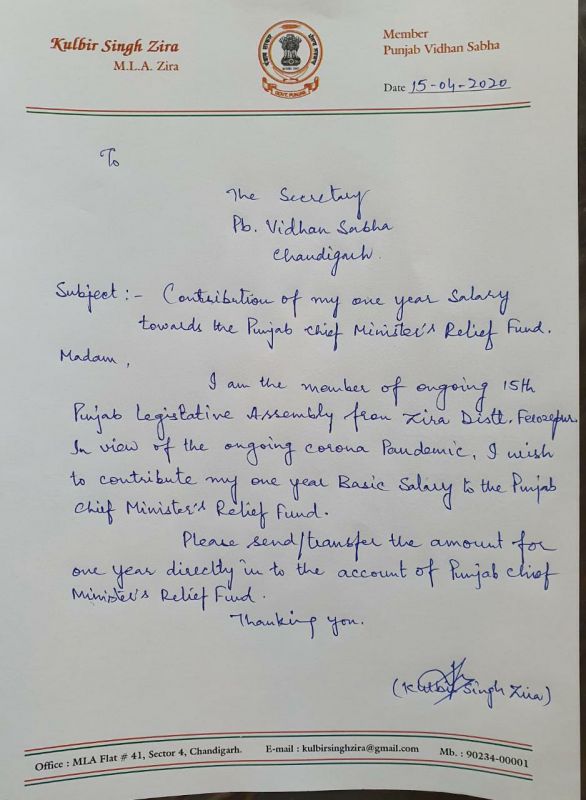 Kulbir Singh Zira
M.L.A. Zira
GOVT. PUNJAB
Member
Punjab Vidhan Sabha
Date 15-04-2020
To
The Secretary
Pb. Vidhan Sabha
Chandigarh.
Subject :- Contribution of my one year Salary
towards the Punjab Chief Minister's Relief Fund.
Madam,
I am the member of ongoing 15th
Punjab Legislative Assembly from Zira Distt. Ferozepur.
In view of the ongoing corona Pandemic, I wish
to contribute my one year Basic Salary to the Punjab
Chief Minister's Relief Fund.
Please send/transfer the amount for
one year directly in to the account of Punjab Chief
Minister's Relief Fund.
Thanking you.
(Kulbir Singh Zira)
Office : MLA Flat # 41, Sector 4, Chandigarh. E-mail : kulbirsinghzira@gmail.com Mb. : 90234-00001